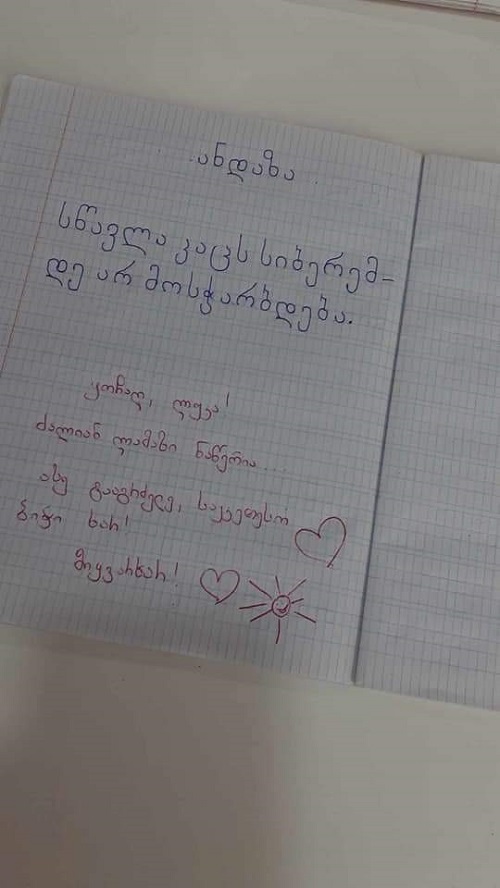 ანდაზა
სწავლა კაცს სიბერემ-
დე არ მოსჭარბდება.
ყოჩაღ, ლუკა!
ძალიან ლამაზი ნაწერია...
ასე გააგრძელე, საუკეთესო
ბიჭი ხარ!
მიყვარხარ!